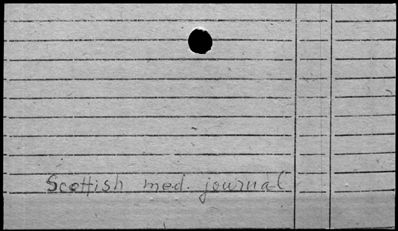 Scottish med. journal